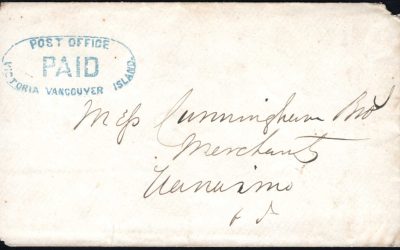 POST OFFICE
PAID
VICTORIA VANCOUVER ISLAND
Mess Cunningham Bro
Merchants
Nanaimo